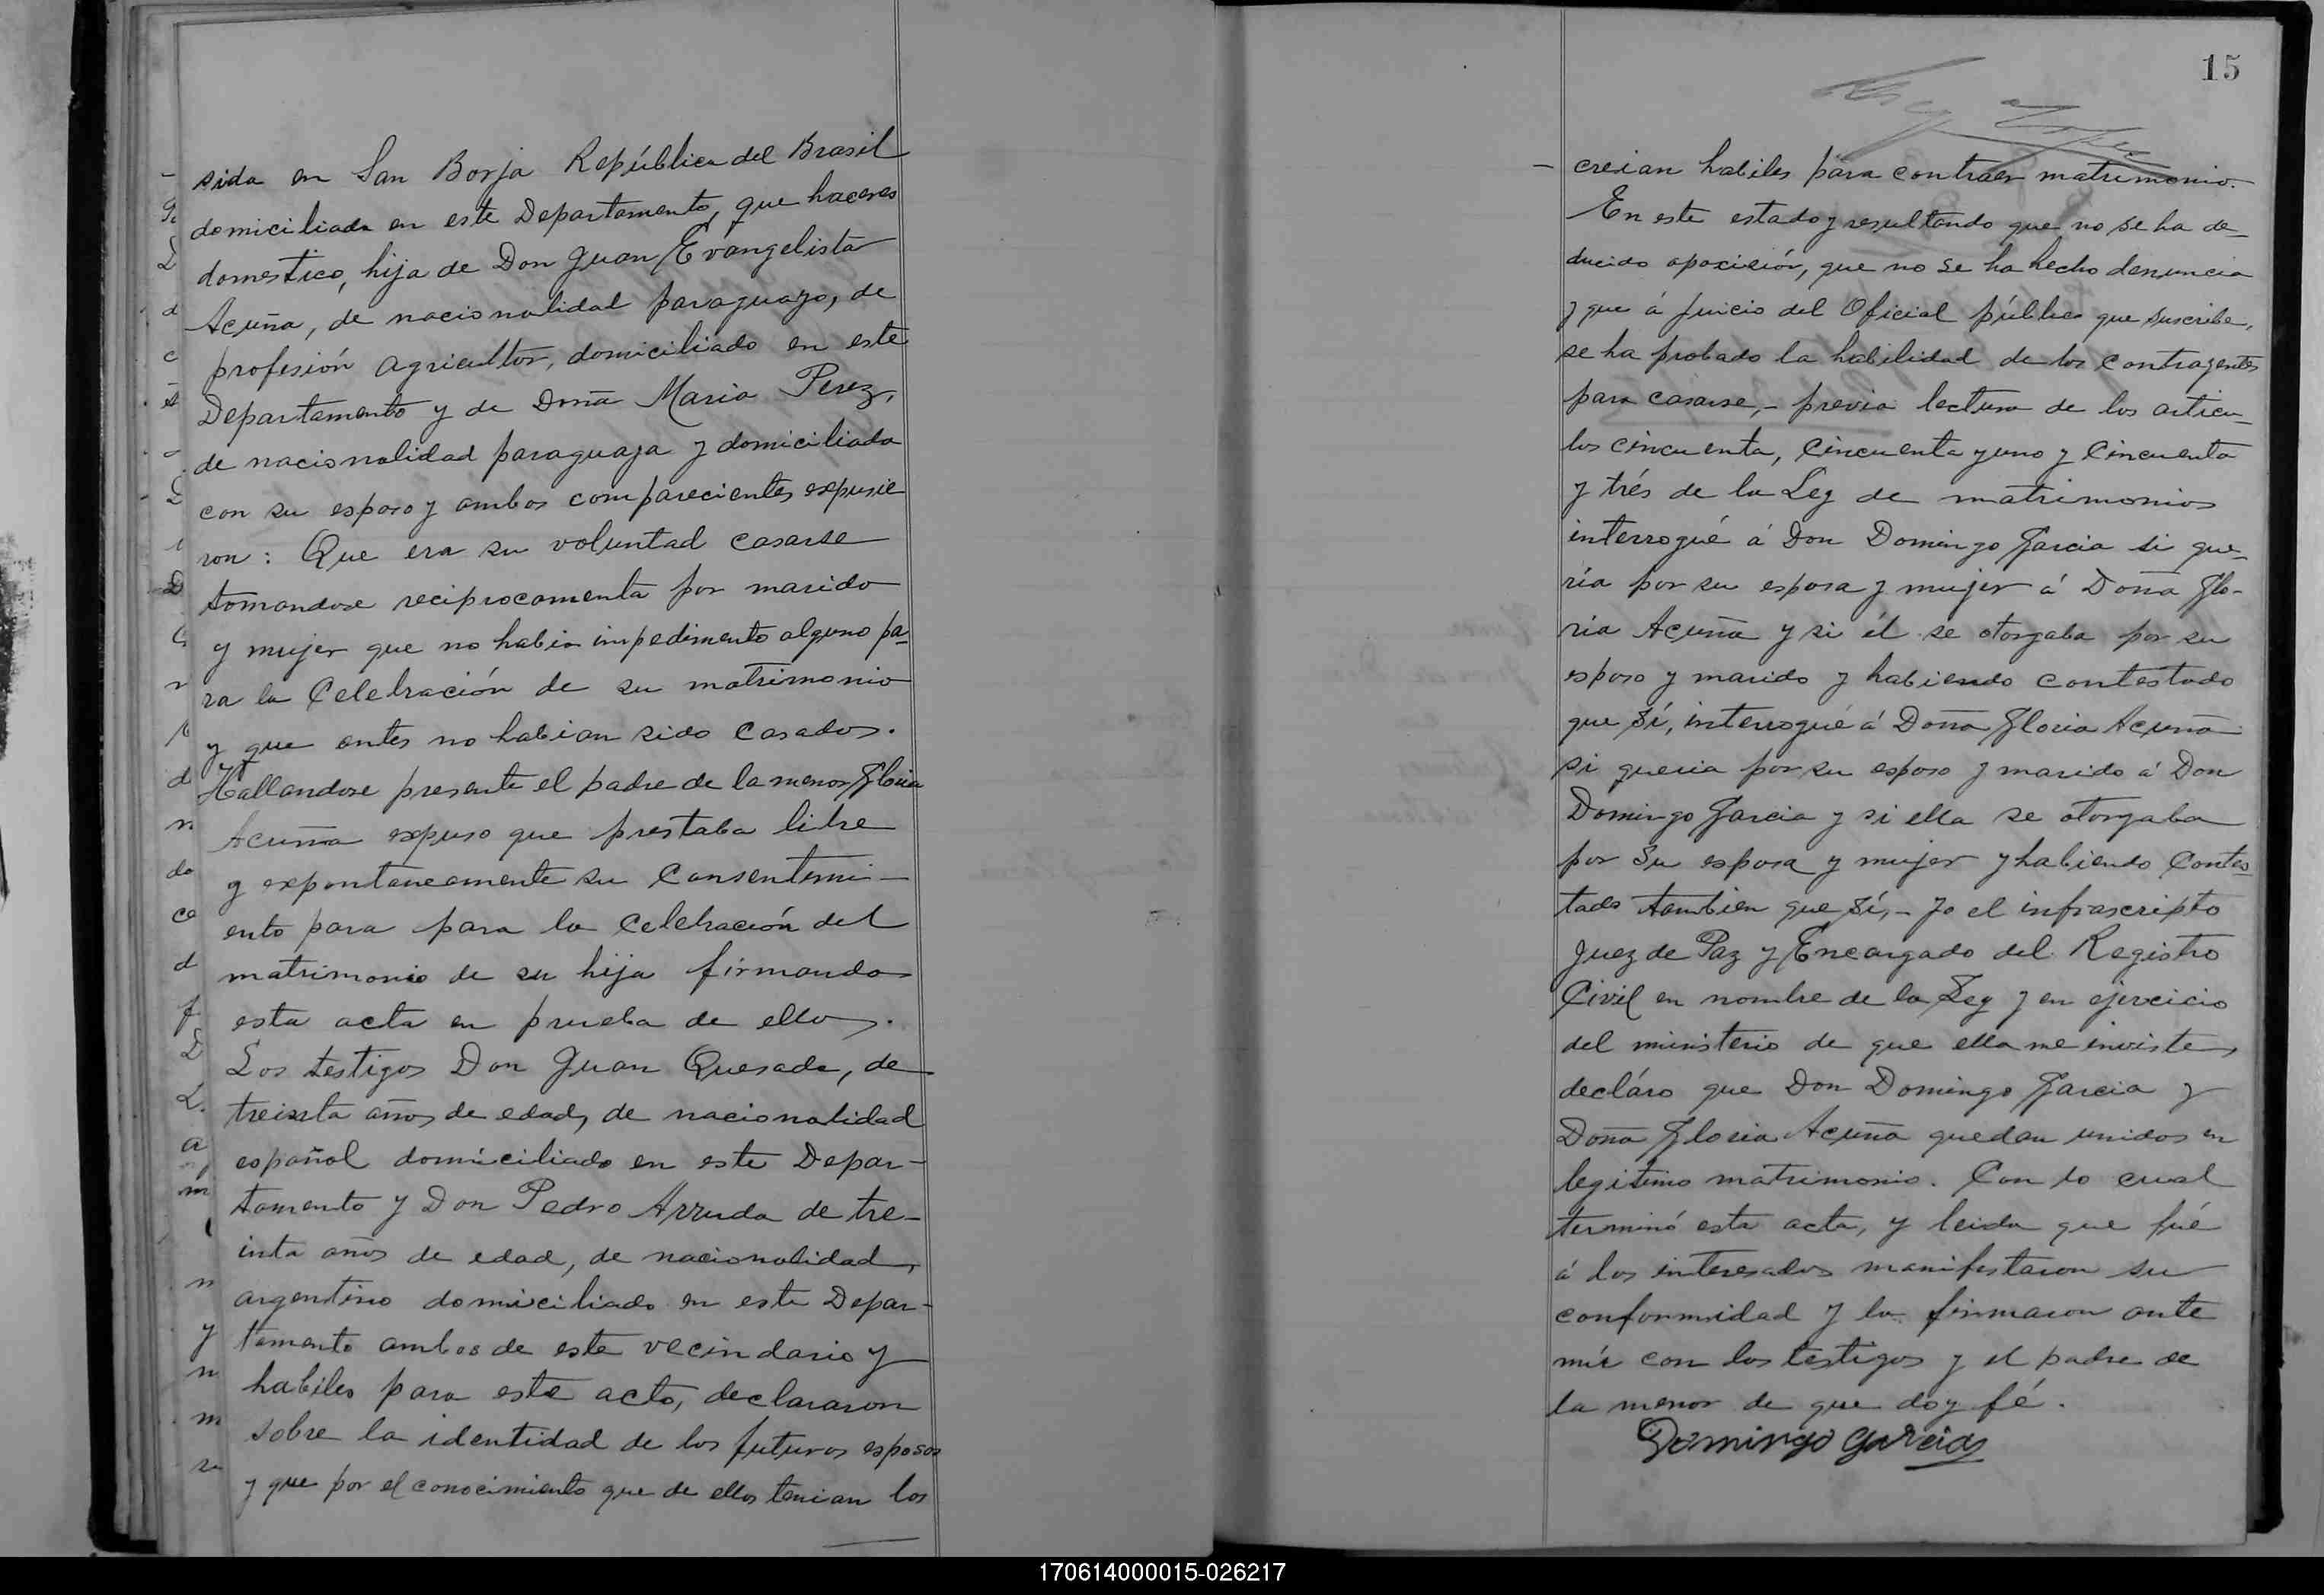 sida en San Borja República del Brasil
domiciliada en este Departamento, que haceres
domestico, hija de Don Juan Evangelista
Acuña, de nacionalidad paraguayo, de
profesión agricultor, domiciliado en este
Departamento y de Doña Maria Perez,
de nacionalidad paraguaya y domiciliada
con su esposo y ambos comparecientes expusie
ron: Que era su voluntad casarse
tomandose reciprocamente por marido
y mujer que no habia impedimento alguno pa-
ra la Celebración de su matrimonio
y que antes no habian sido casados.
Hallandose presente el padre de la menor Gloria
Acuña expuso que prestaba libre
y expontaneamente su Consentimi-
ento para para la Celebración del
matrimonio de su hija firmando
esta acta en prueba de ello.
Los testigos Don Juan Quesada, de
treinta años de edad, de nacionalidad
español domiciliado en este Depar-
tamento y Don Pedro Arruda de tre-
inta años de edad, de nacionalidad,
argentino domiciliado en este Depar-
tamento ambos de este vecindario y
habiles para este acto, declararon
sobre la identidad de los futuros esposos
y que por el conocimiento que de ellos tenian los
15
creian habiles para contraer matrimonio.
En este estado y resultando que no se ha de-
ducido oposición, que no se ha hecho denuncia
y que á juicio del Oficial público que suscribe,
se ha probado la habilidad de los contrayentes
para casarse,- previa lectura de los articu-
los cincuenta, cincuenta y uno y Cincuenta
y trés de la Ley de matrimonios
interrogué á Don Domingo Garcia si que-
ria por su esposa y mujer á Doña Glo-
ria Acuña y si él se otorgaba por su
esposo y marido y habiendo contestado
que sí, interrogué á Doña Gloria Acuña
si queria por su esposo y marido á Don
Domingo Garcia y si ella se otorgaba
por su esposa y mujer y habiendo Contes-
tado tambien que sí,- Yo el infrascripto
Juez de Paz y Encargado del Registro
Civil en nombre de la Ley y en ejercicio
del ministerio de que ella me inviste,
decláro que Don Domingo Garcia y
Doña Gloria Acuña quedan unidos en
legitimo matrimonio. Con lo cual
terminó esta acta, y leida que fué
á los interesados manifestaron su
conformidad y la firmaron ante
mí con los testigos y el padre de
la menor de que doy fé.
Domingo Garcia
170614000015-026217